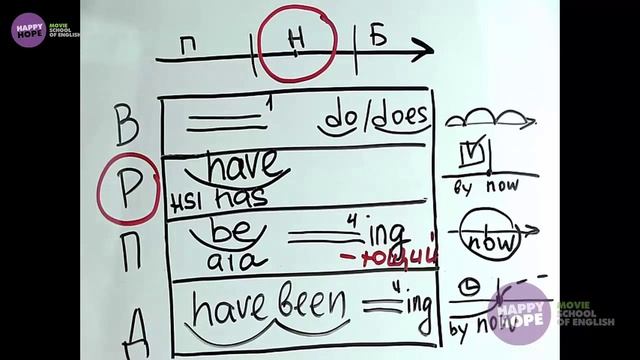 HAPPY HOPE MOVIE SCHOOL OF ENGLISH
П Н Б
В 1 do/does
Р have
HSI has
by now
П be 4 ing
now
а1а -ющий
Д have been 4 ing
by now
HAPPY HOPE MOVIE SCHOOL OF ENGLISH